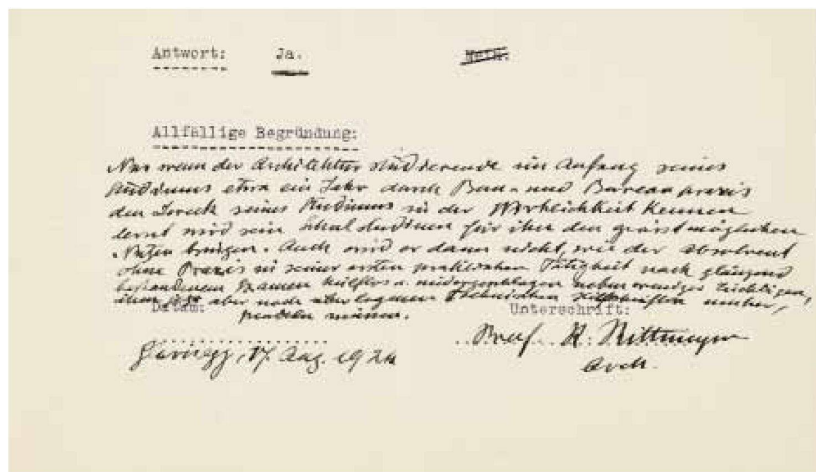 Antwort: Ja. Nein.
Allfällige Begründung:
Nur wenn der Architektur studierende im Anfang seines
Studiums etwa ein Jahr durch Bau- und Bureau praxis
den Zweck seines Studiums in der Wirklichkeit kennen
lernt wird sein Schulstudium für ihn den grösstmöglichen
Nutzen bringen. Auch wird er dann nicht, wie der absolvent
ohne Praxis in seiner ersten praktischen Tätigkeit nach glänzend
bestandenem Examen hilflos u. niedergeschlagen neben weniger
aber noch technischen Hilfskräften umher,
müssen.
Datum: Unterschrift:
17. Aug. 192
Prof. R. Rittmeyer
Arch.